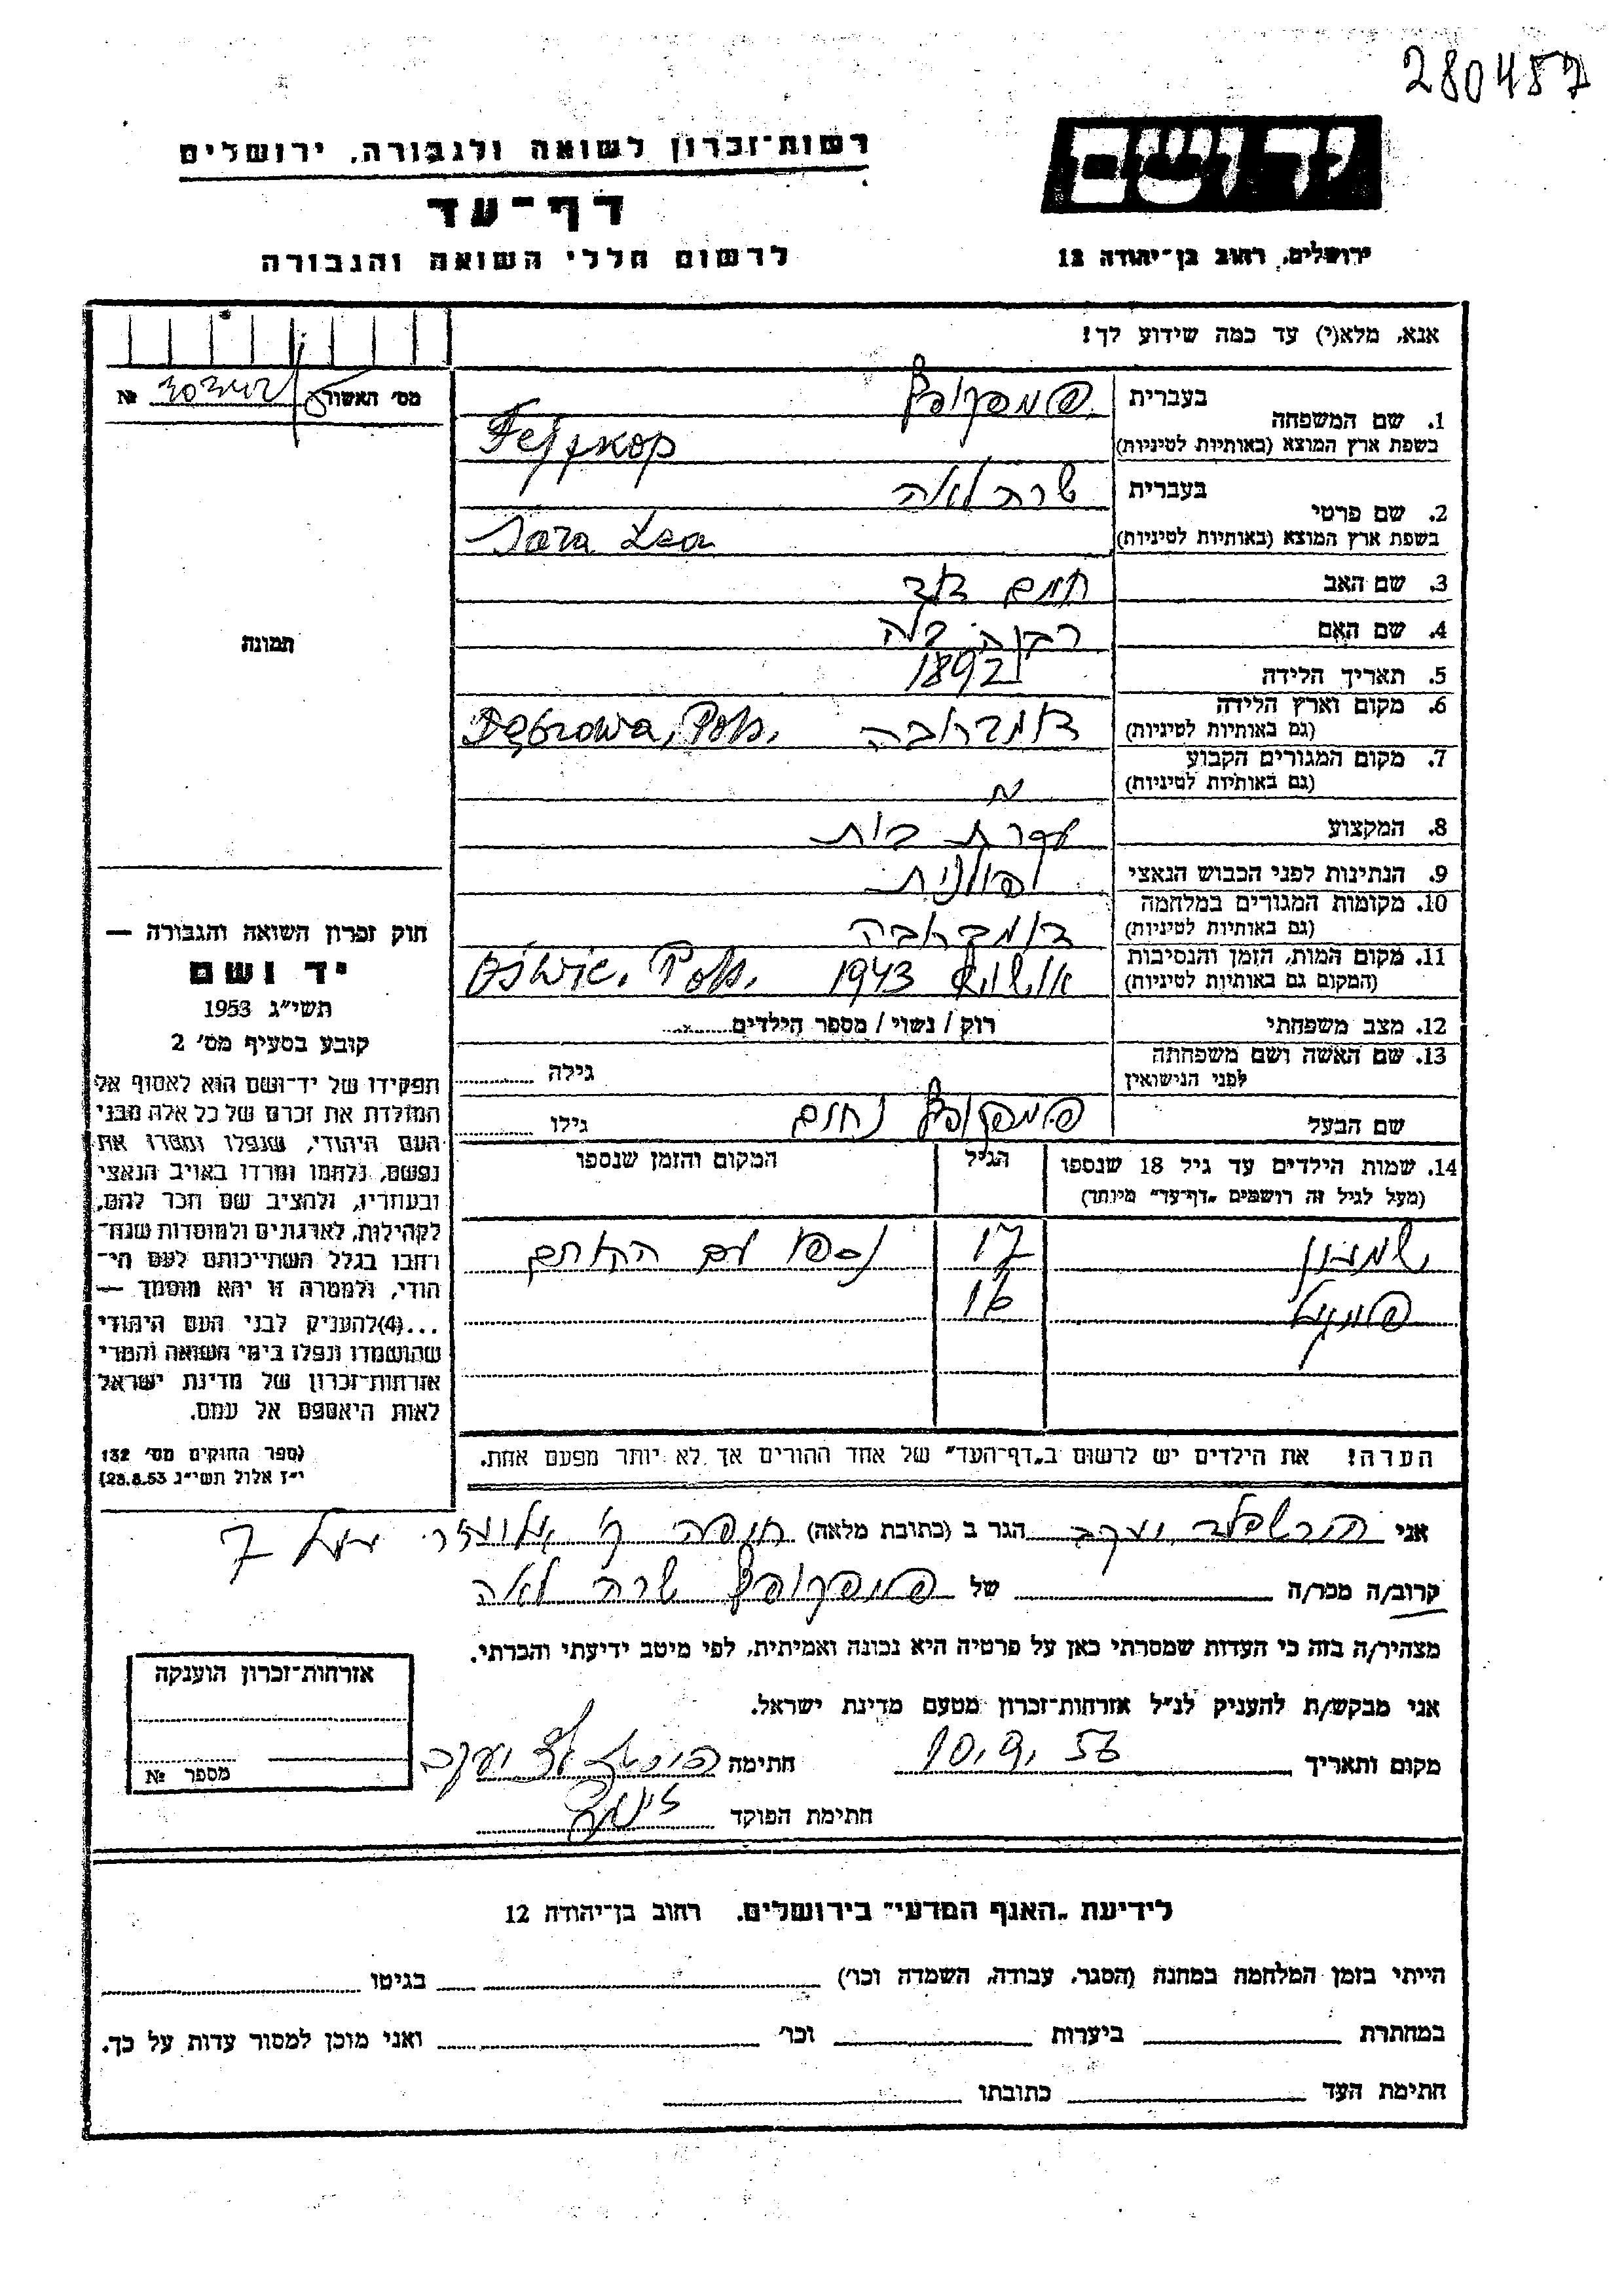 280487
רשות־זכרון לשואה ולגבורה, ירושלים
יד ושם
דף־עד
לרשום חללי השואה והגבורה
ירושלים, רחוב בן־יהודה 12
אנא, מלא(י) עד כמה שידוע לך!
מס׳ האשור № 
1. שם המשפחה בעברית
בשפת ארץ המוצא (באותיות לטיניות) Fejfkop
2. שם פרטי בעברית שרה לאה
בשפת ארץ המוצא (באותיות לטיניות) Sara Lea
3. שם האב חיים דוד
4. שם האם רבקה בלה
5. תאריך הלידה 1892
6. מקום וארץ הלידה דומברובה Dąbrowa, Pols.
(גם באותיות לטיניות)
7. מקום המגורים הקבוע
(גם באותיות לטיניות)
8. המקצוע עקרת בית
9. הנתינות לפני הכבוש הנאצי פולנית
10. מקומות המגורים במלחמה
(גם באותיות לטיניות) דומברובה
11. מקום המות, הזמן והנסיבות 1943 Oświę. Pols.
(המקום גם באותיות לטיניות)
12. מצב משפחתי רוק / נשוי / מספר הילדים
13. שם האשה ושם משפחתה
לפני הנישואין גילה
שם הבעל נחום גילו
14. שמות הילדים עד גיל 18 שנספו הגיל המקום והזמן שנספו
(מעל לגיל זה רושמים „דף־עד״ מיוחד)
שמעון 17 נספו עם ההורים
16
הערה! את הילדים יש לרשום ב„דף־העד״ של אחד ההורים אך לא יותר מפעם אחת.
תמונה
חוק זכרון השואה והגבורה —
יד ושם
תשי״ג 1953
קובע בסעיף מס׳ 2
תפקידו של יד־ושם הוא לאסוף אל
המולדת את זכרם של כל אלה מבני
העם היהודי, שנפלו ומסרו את
נפשם, נלחמו ומרדו באויב הנאצי
ובעוזריו, ולהציב שם וזכר להם,
לקהילות, לארגונים ולמוסדות שנח־
רבו בגלל השתייכותם לעם הי־
הודי, ולמטרה זו יהא מוסמך —
...(4)להעניק לבני העם היהודי
שהושמדו ונפלו בימי השואה והמרי
אזרחות־זכרון של מדינת ישראל
לאות היאספם אל עמם.
(ספר החוקים מס׳ 132
י״ז אלול תשי״ג 28.8.53)
אני יעקב הגר ב (כתובת מלאה) חיפה ק׳ אליעזר 7
קרוב/ה מכר/ה של שרה לאה
מצהיר/ה בזה כי העדות שמסרתי כאן על פרטיה היא נכונה ואמיתית, לפי מיטב ידיעתי והכרתי.
אני מבקש/ת להעניק לנ״ל אזרחות־זכרון מטעם מדינת ישראל.
מקום ותאריך 10.9.56 חתימה יעקב
חתימת הפוקד
אזרחות־זכרון הוענקה
מספר №
לידיעת „האגף המדעי״ בירושלים. רחוב בן־יהודה 12
הייתי בזמן המלחמה במחנה (הסגר, עבודה, השמדה וכו׳) בגיטו
במחתרת ביערות וכו׳ ואני מוכן למסור עדות על כך.
חתימת העד כתובתו